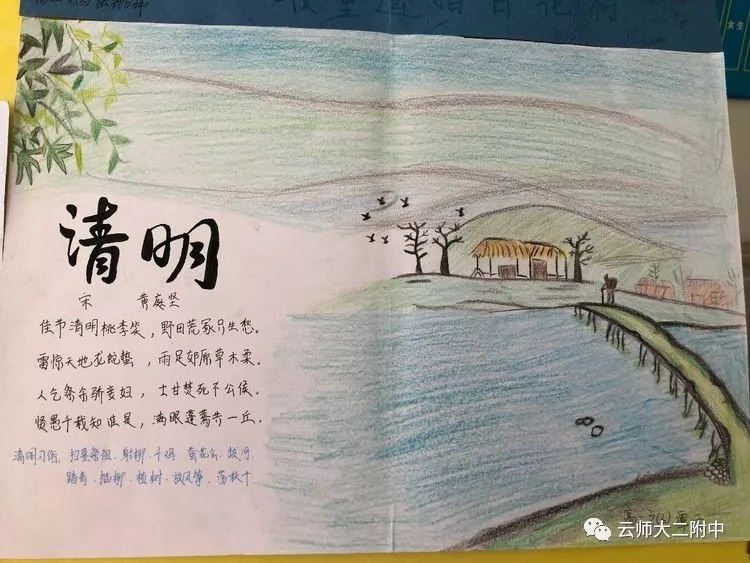 清明
宋 黄庭坚
佳节清明桃李笑,野田荒冢只生愁。
雷惊天地龙蛇蛰,雨足郊原草木柔。
人乞祭余骄妾妇,士甘焚死不公侯。
贤愚千载知谁是,满眼蓬蒿共一丘。
清明习俗:扫墓祭祖、射柳、斗鸡、蚕花会、拔河
踏青、插柳、植树、放风筝、荡秋千
云师大二附中